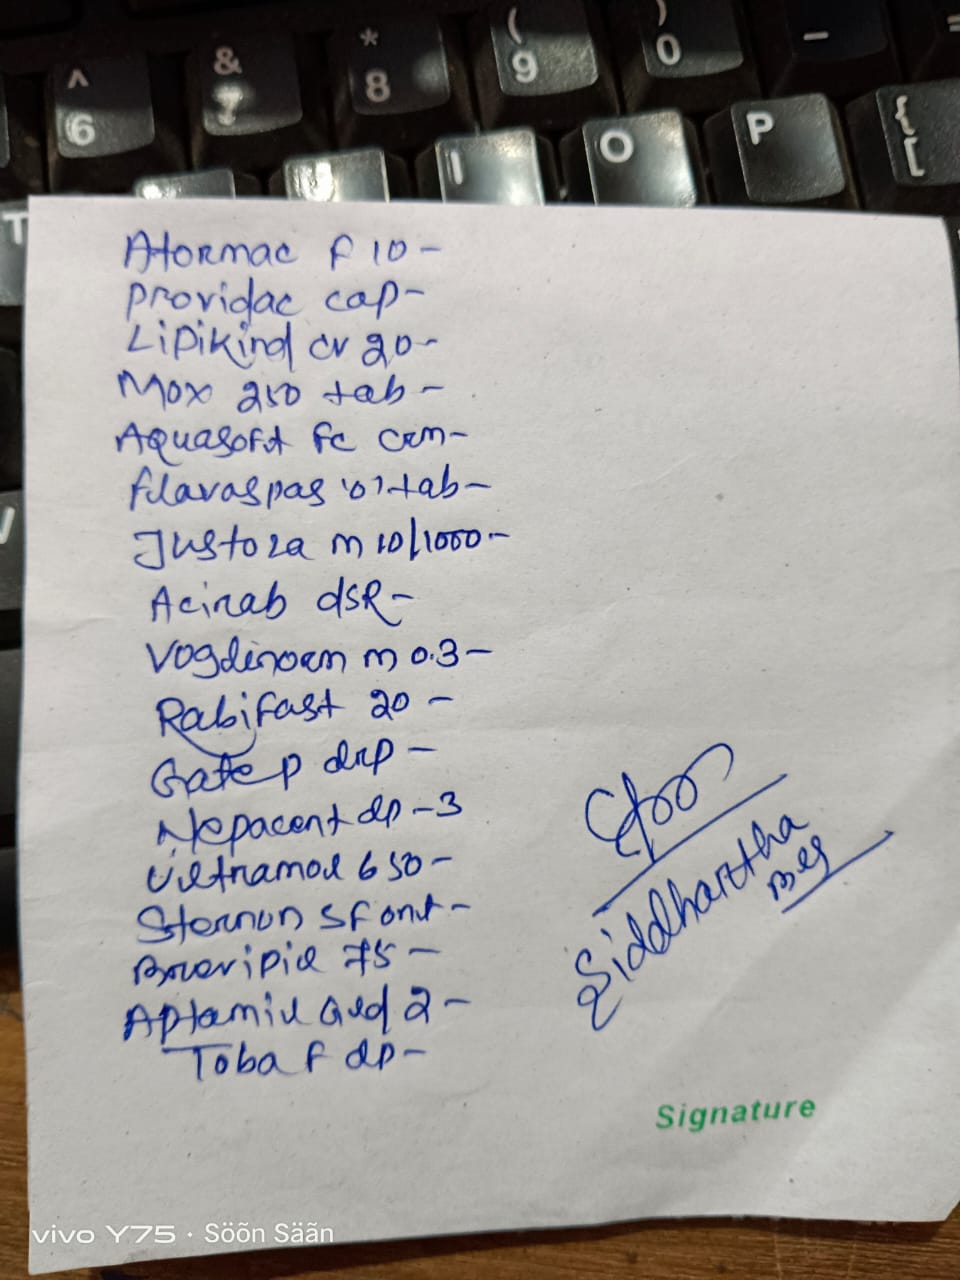 ^ & * ( ) _ =
6 7 8 9 0
T I O P { [
V
Atormac F 10 -
Providac cap -
Lipikind cv 20 -
Mox 250 tab -
Aquasoft fc crm -
flavaspas 'o' tab -
Justoza m 10/1000 -
Acirab dSR -
Vogdinorm m 0.3 -
Rabifast 20 -
Gate p drp -
Nepacent dp - 3
Ultramol 650 -
Sternon SF onit -
75 -
Aptamil Gold 2 -
Toba F dp -
Siddhartha
Signature
vivo Y75 · Söõn Säãn